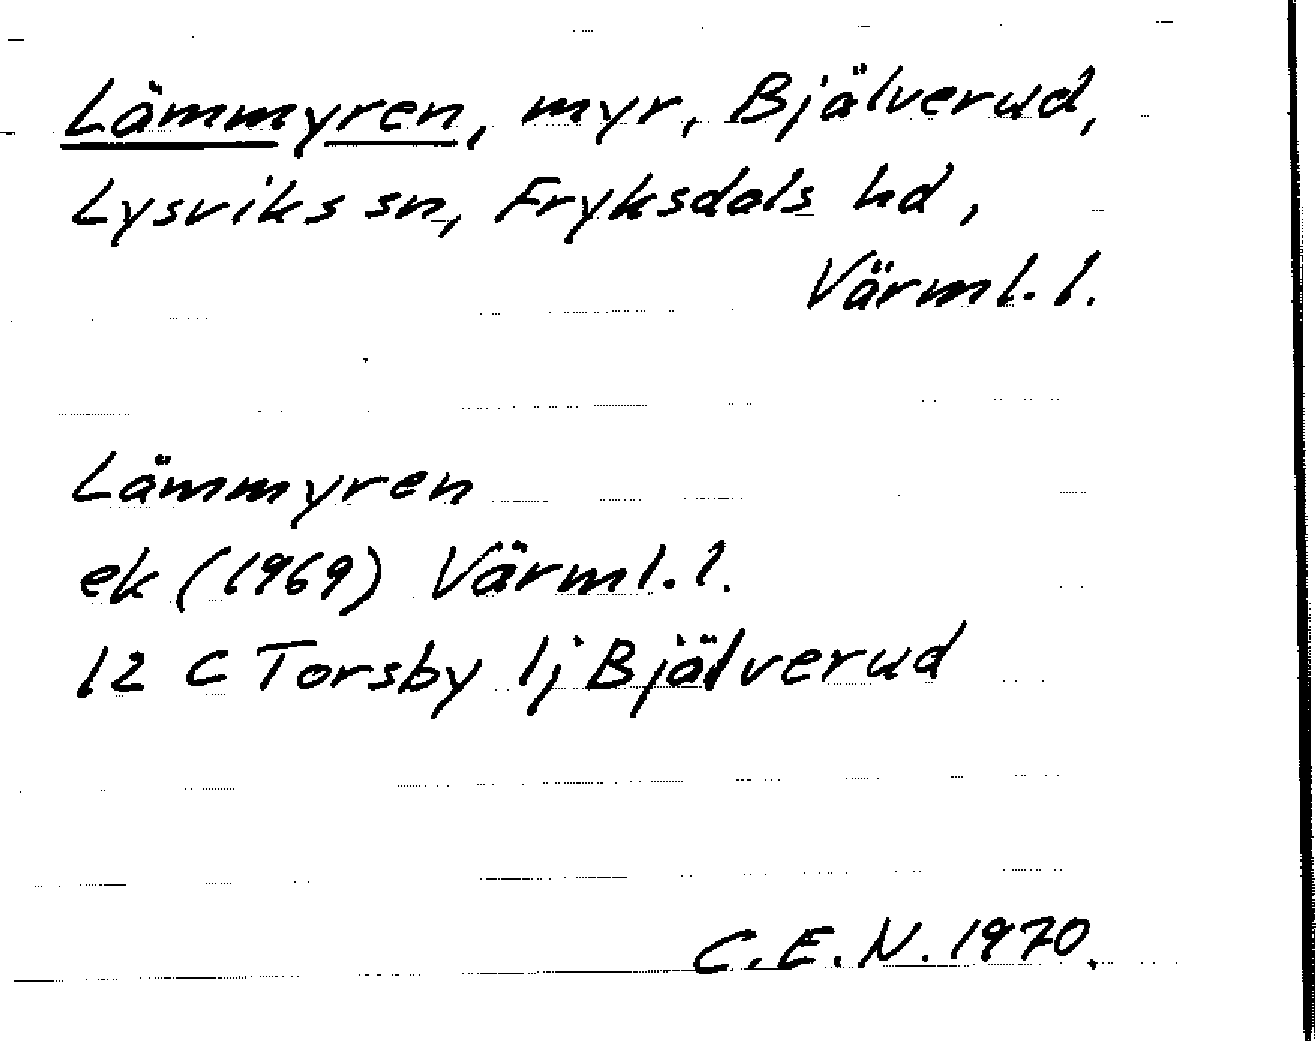 Lämmyren, myr, Bjälverud,
Lysviks sn, Fryksdals hd,
Värml. l.
Lämmyren
ek (1969) Värml. l.
12 C Torsby lj Bjälverud
C. E. N. 1970.